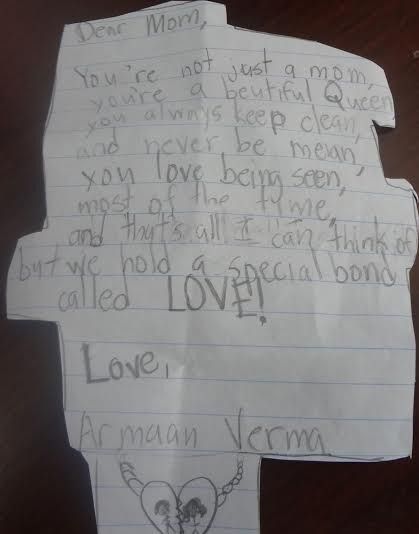 Dear Mom,
You're not just a mom,
you're a beutiful Queen
you always keep clean,
and never be mean,
you love being seen,
most of the time,
and that's all I can think of
but we hold a special bond
called LOVE!
Love,
Armaan Verma